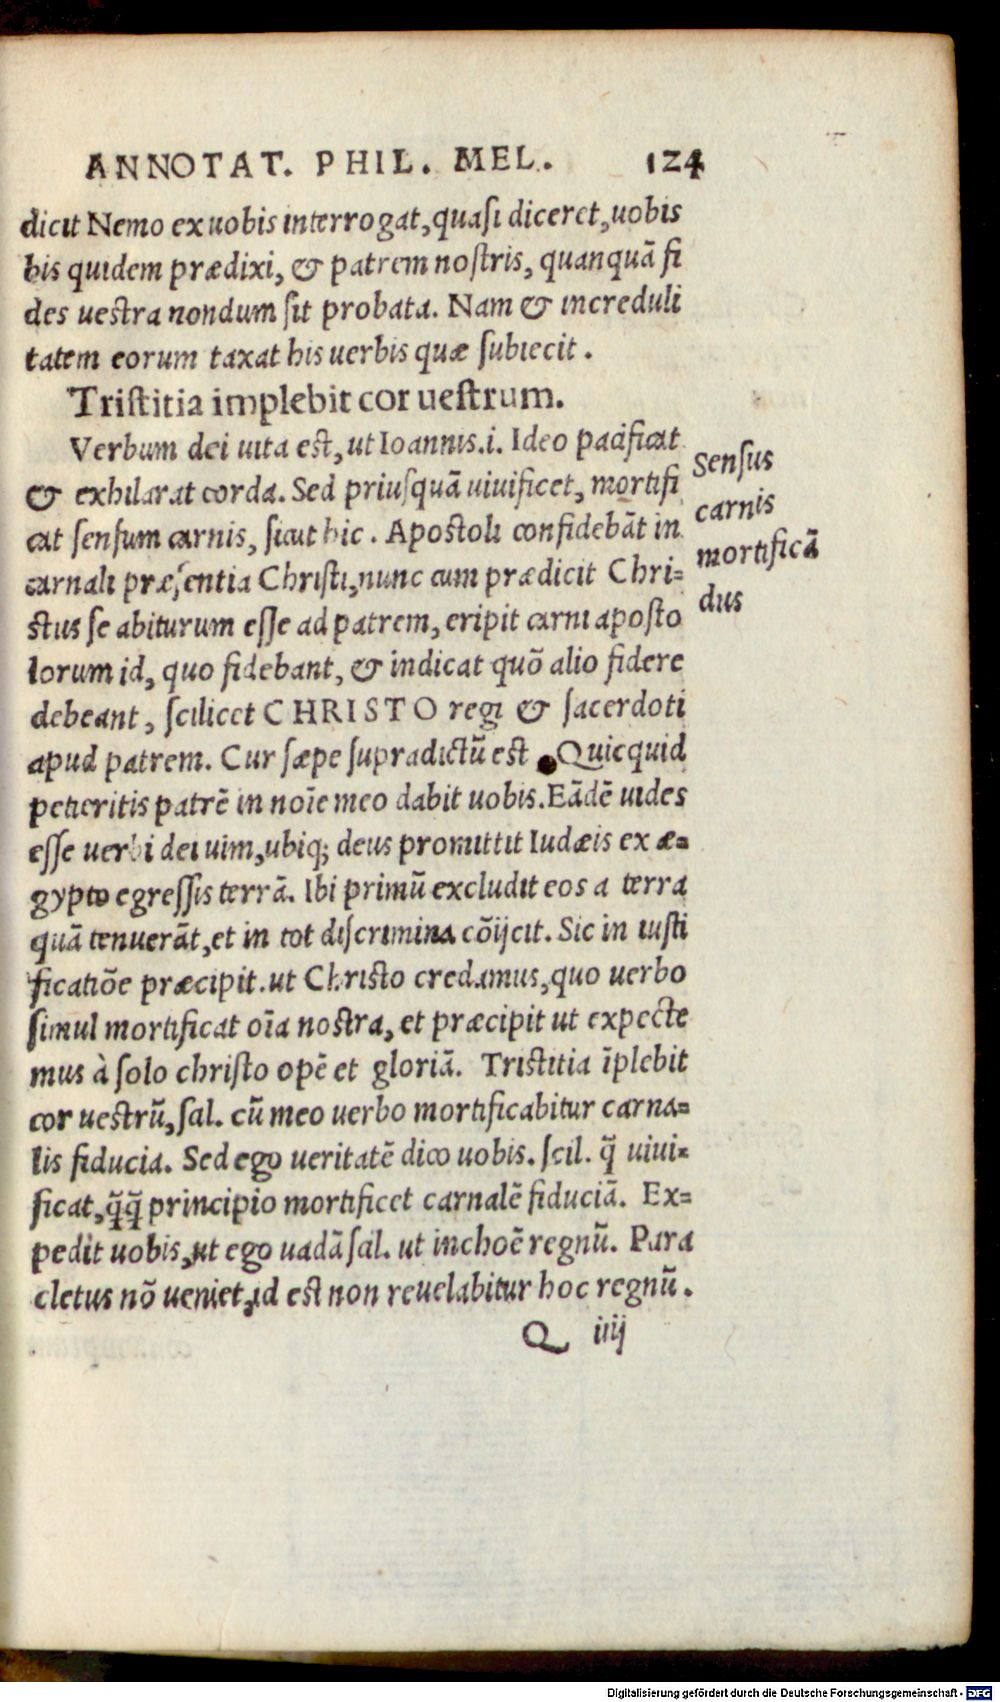 ANNOTAT. PHIL. MEL. 124
dicit Nemo ex uobis interrogat, quasi diceret, uobis
bis quidem prædixi, & patrem nostris, quanquā fi
des uestra nondum sit probata. Nam & increduli
tatem eorum taxat his uerbis quæ subiecit.
Tristitia implebit cor uestrum.
Verbum dei uita est, ut Ioannis.i. Ideo pacificat
& exhilarat corda. Sed priusquā uiuificet, mortifi
cat sensum carnis, sicut hic. Apostoli confidebāt in
carnali præsentia Christi, nunc cum prædicit Chri=
stus se abiturum esse ad patrem, eripit carni aposto
lorum id, quo fidebant, & indicat quō alio fidere
debeant, scilicet CHRISTO regi & sacerdoti
apud patrem. Cur sæpe supradictū est. Quicquid
petieritis patrē in noīe meo dabit uobis. Eādē uides
esse uerbi dei uim, ubiq; deus promittit Iudæis ex æ=
gypto egressis terrā. Ibi primū excludit eos a terra
quā tenuerāt, et in tot discrimina cōijcit. Sic in iusti
ficatiōe præcipit. ut Christo credamus, quo uerbo
simul mortificat oīa nostra, et præcipit ut expecte
mus à solo christo opē et gloriā. Tristitia īplebit
cor uestrū, sal. cū meo uerbo mortificabitur carna=
lis fiducia. Sed ego ueritatē dico uobis. scil. q̃ uiui=
ficat, q̃q̃ principio mortificet carnalē fiduciā. Ex=
pedit uobis, ut ego uadā sal. ut inchoē regnū. Para
cletus nō ueniet, id est non reuelabitur hoc regnū.
Q iiij
Sensus
carnis
mortificā
dus
Digitalisierung gefördert durch die Deutsche Forschungsgemeinschaft - DFG